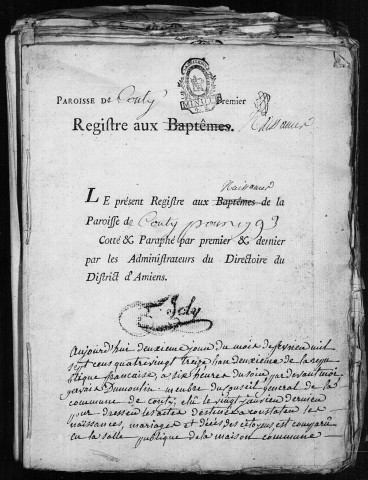 PAROISSE DE Conty Premier
Registre aux Baptêmes. Naissances
Naissances
LE présent Registre aux Baptêmes de la
Paroisse de Conty pour 1793
Cotté & Paraphé par premier & dernier
par les Administrateurs du Directoire du
District d'Amiens.
Aujourd'hui deuxieme jour du mois de fevrier mil
sept cens quatre vingt treize l'an deuxieme de la repu
blique française, a six heures du soir, par devant moi
Dumoulin membre du conseil general de la
commune de conty, elu le vingt janvier dernier
pour dresser les actes destinés a constater les
naissances, mariages et décès des citoyens, est comparu
en la salle publique de la maison commune